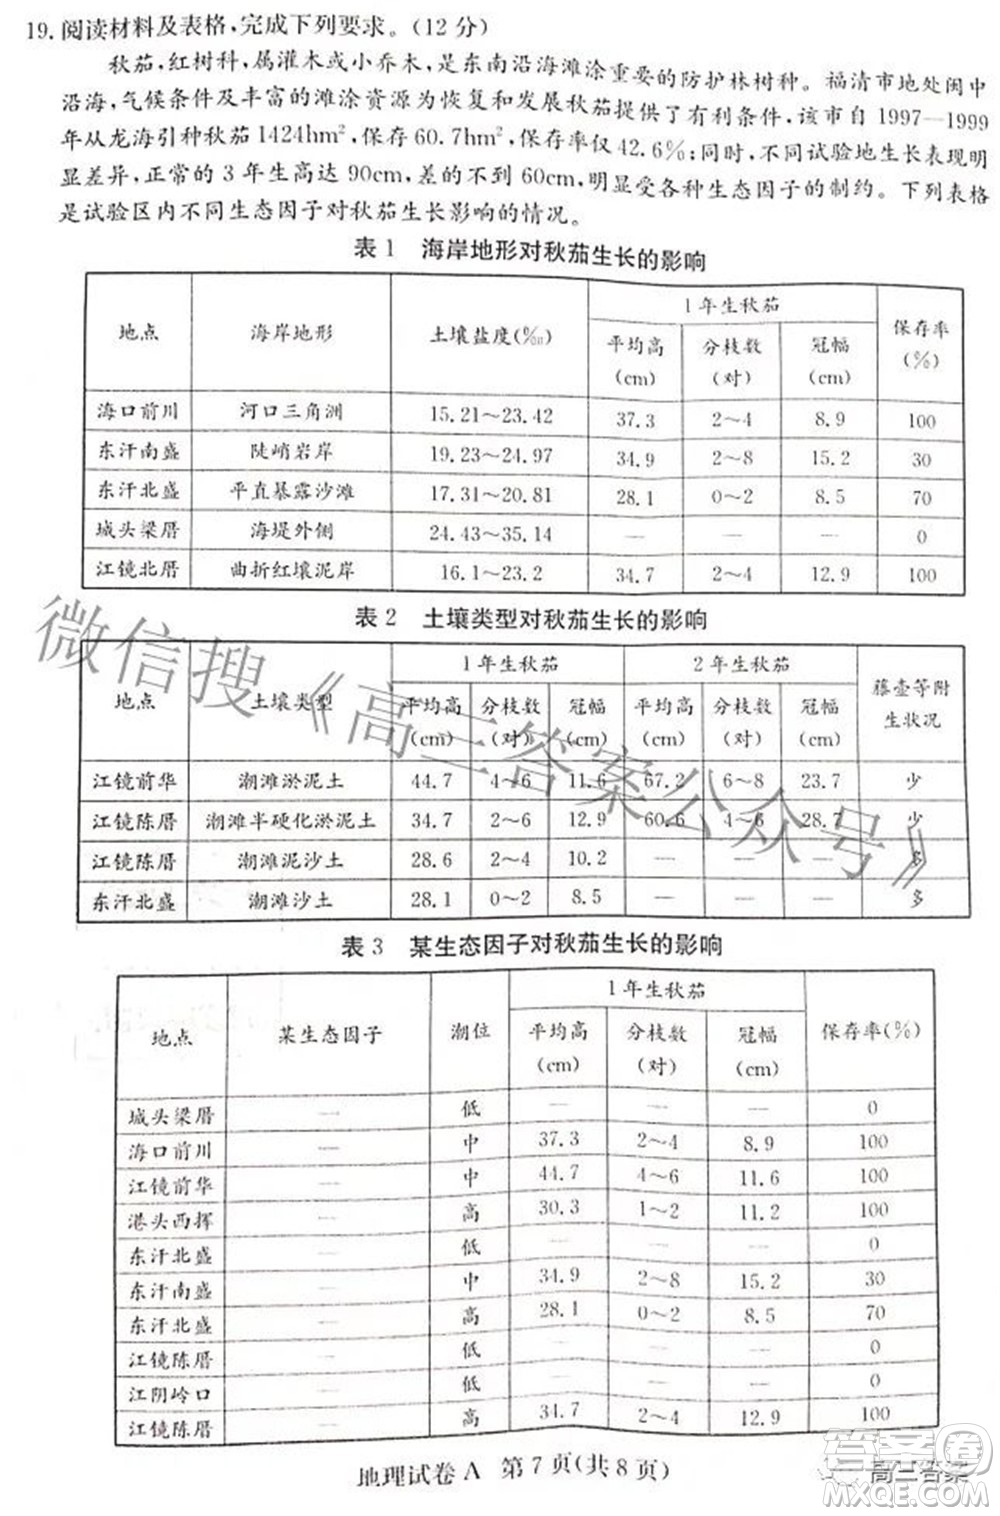 19. 阅读材料及表格,完成下列要求。(12 分)
秋茄,红树科,属灌木或小乔木,是东南沿海滩涂重要的防护林树种。福清市地处闽中
沿海,气候条件及丰富的滩涂资源为恢复和发展秋茄提供了有利条件,该市自 1997—1999
年从龙海引种秋茄 1424hm²,保存 60.7hm²,保存率仅 42.6%;同时,不同试验地生长表现明
显差异,正常的 3 年生高达 90cm,差的不到 60cm,明显受各种生态因子的制约。下列表格
是试验区内不同生态因子对秋茄生长影响的情况。
表 1 海岸地形对秋茄生长的影响
地点 海岸地形 土壤盐度(‰) 1 年生秋茄 保存率(%)
平均高(cm) 分枝数(对) 冠幅(cm)
海口前川 河口三角洲 15.21~23.42 37.3 2~4 8.9 100
东汗南盛 陡峭岩岸 19.23~24.97 34.9 2~8 15.2 30
东汗北盛 平直暴露沙滩 17.31~20.81 28.1 0~2 8.5 70
城头梁厝 海堤外侧 24.43~35.14 — — — 0
江镜北厝 曲折红壤泥岸 16.1~23.2 34.7 2~4 12.9 100
表 2 土壤类型对秋茄生长的影响
地点 土壤类型 1 年生秋茄 2 年生秋茄 藤壶等附生状况
平均高(cm) 分枝数(对) 冠幅(cm) 平均高(cm) 分枝数(对) 冠幅(cm)
江镜前华 潮滩淤泥土 44.7 4~6 11.6 67.2 6~8 23.7 少
江镜陈厝 潮滩半硬化淤泥土 34.7 2~6 12.9 60.6 4~6 28.7 少
江镜陈厝 潮滩泥沙土 28.6 2~4 10.2 — — — 多
东汗北盛 潮滩沙土 28.1 0~2 8.5 — — — 多
表 3 某生态因子对秋茄生长的影响
地点 某生态因子 潮位 1 年生秋茄 保存率(%)
平均高(cm) 分枝数(对) 冠幅(cm)
城头梁厝 — 低 — — — 0
海口前川 — 中 37.3 2~4 8.9 100
江镜前华 — 中 44.7 4~6 11.6 100
港头西挥 — 高 30.3 1~2 11.2 100
东汗北盛 — 低 — — — 0
东汗南盛 — 中 34.9 2~8 15.2 30
东汗北盛 — 高 28.1 0~2 8.5 70
江镜陈厝 — 低 — — — 0
江阴岭口 — 低 — — — 0
江镜陈厝 — 高 34.7 2~4 12.9 100
地理试卷 A 第 7 页(共 8 页)
微信搜《高三答案公众号》
高三答案
答案圈
MXQE.COM